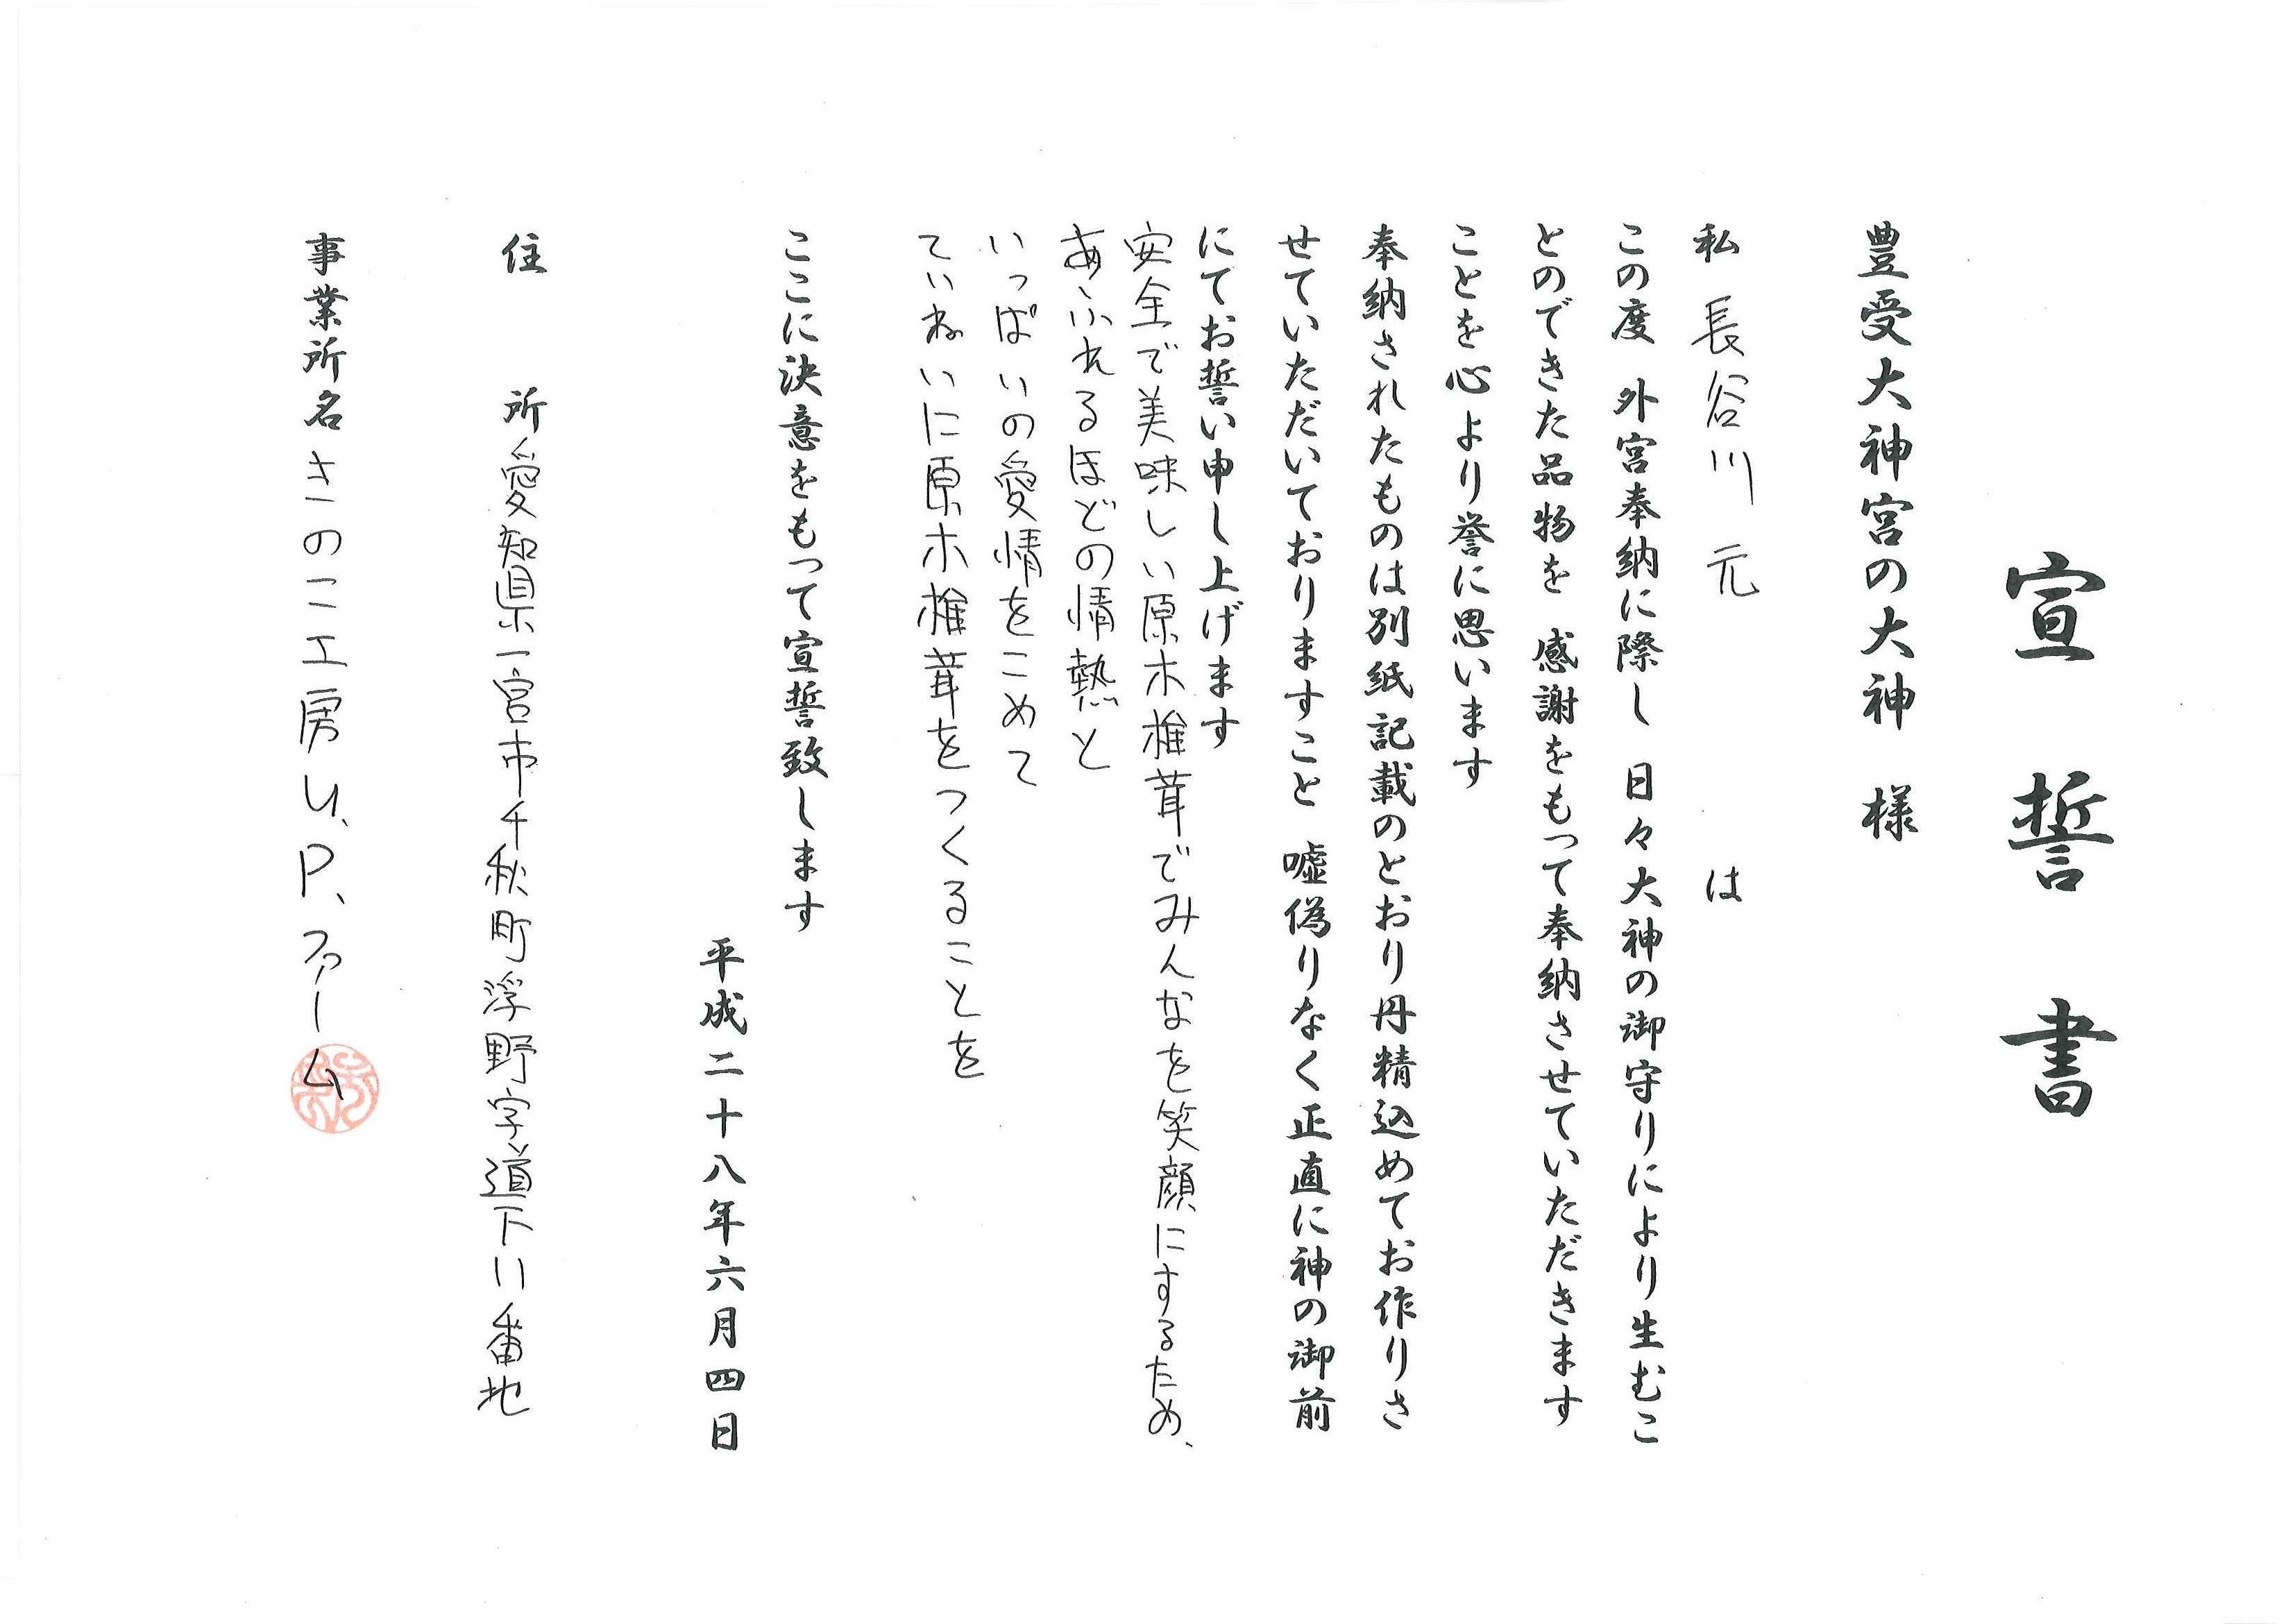 宣誓書
豊受大神宮の大神 様
私 長谷川 元 は
この度 外宮奉納に際し 日々大神の御守りにより生むこ
とのできた品物を 感謝をもって奉納させていただきます
ことを心より誉に思います
奉納されたものは別紙記載のとおり丹精込めてお作りさ
せていただいておりますこと 嘘偽りなく正直に神の御前
にてお誓い申し上げます
安全で美味しい原木椎茸でみんなを笑顔にするため、
あふれるほどの情熱と
いっぱいの愛情をこめて
ていねいに原木椎茸をつくることを
ここに決意をもって宣誓致します
平成二十八年六月四日
住 所 愛知県一宮市千秋町浮野字道下11番地
事業所名 きのこ工房U.P.ファーム